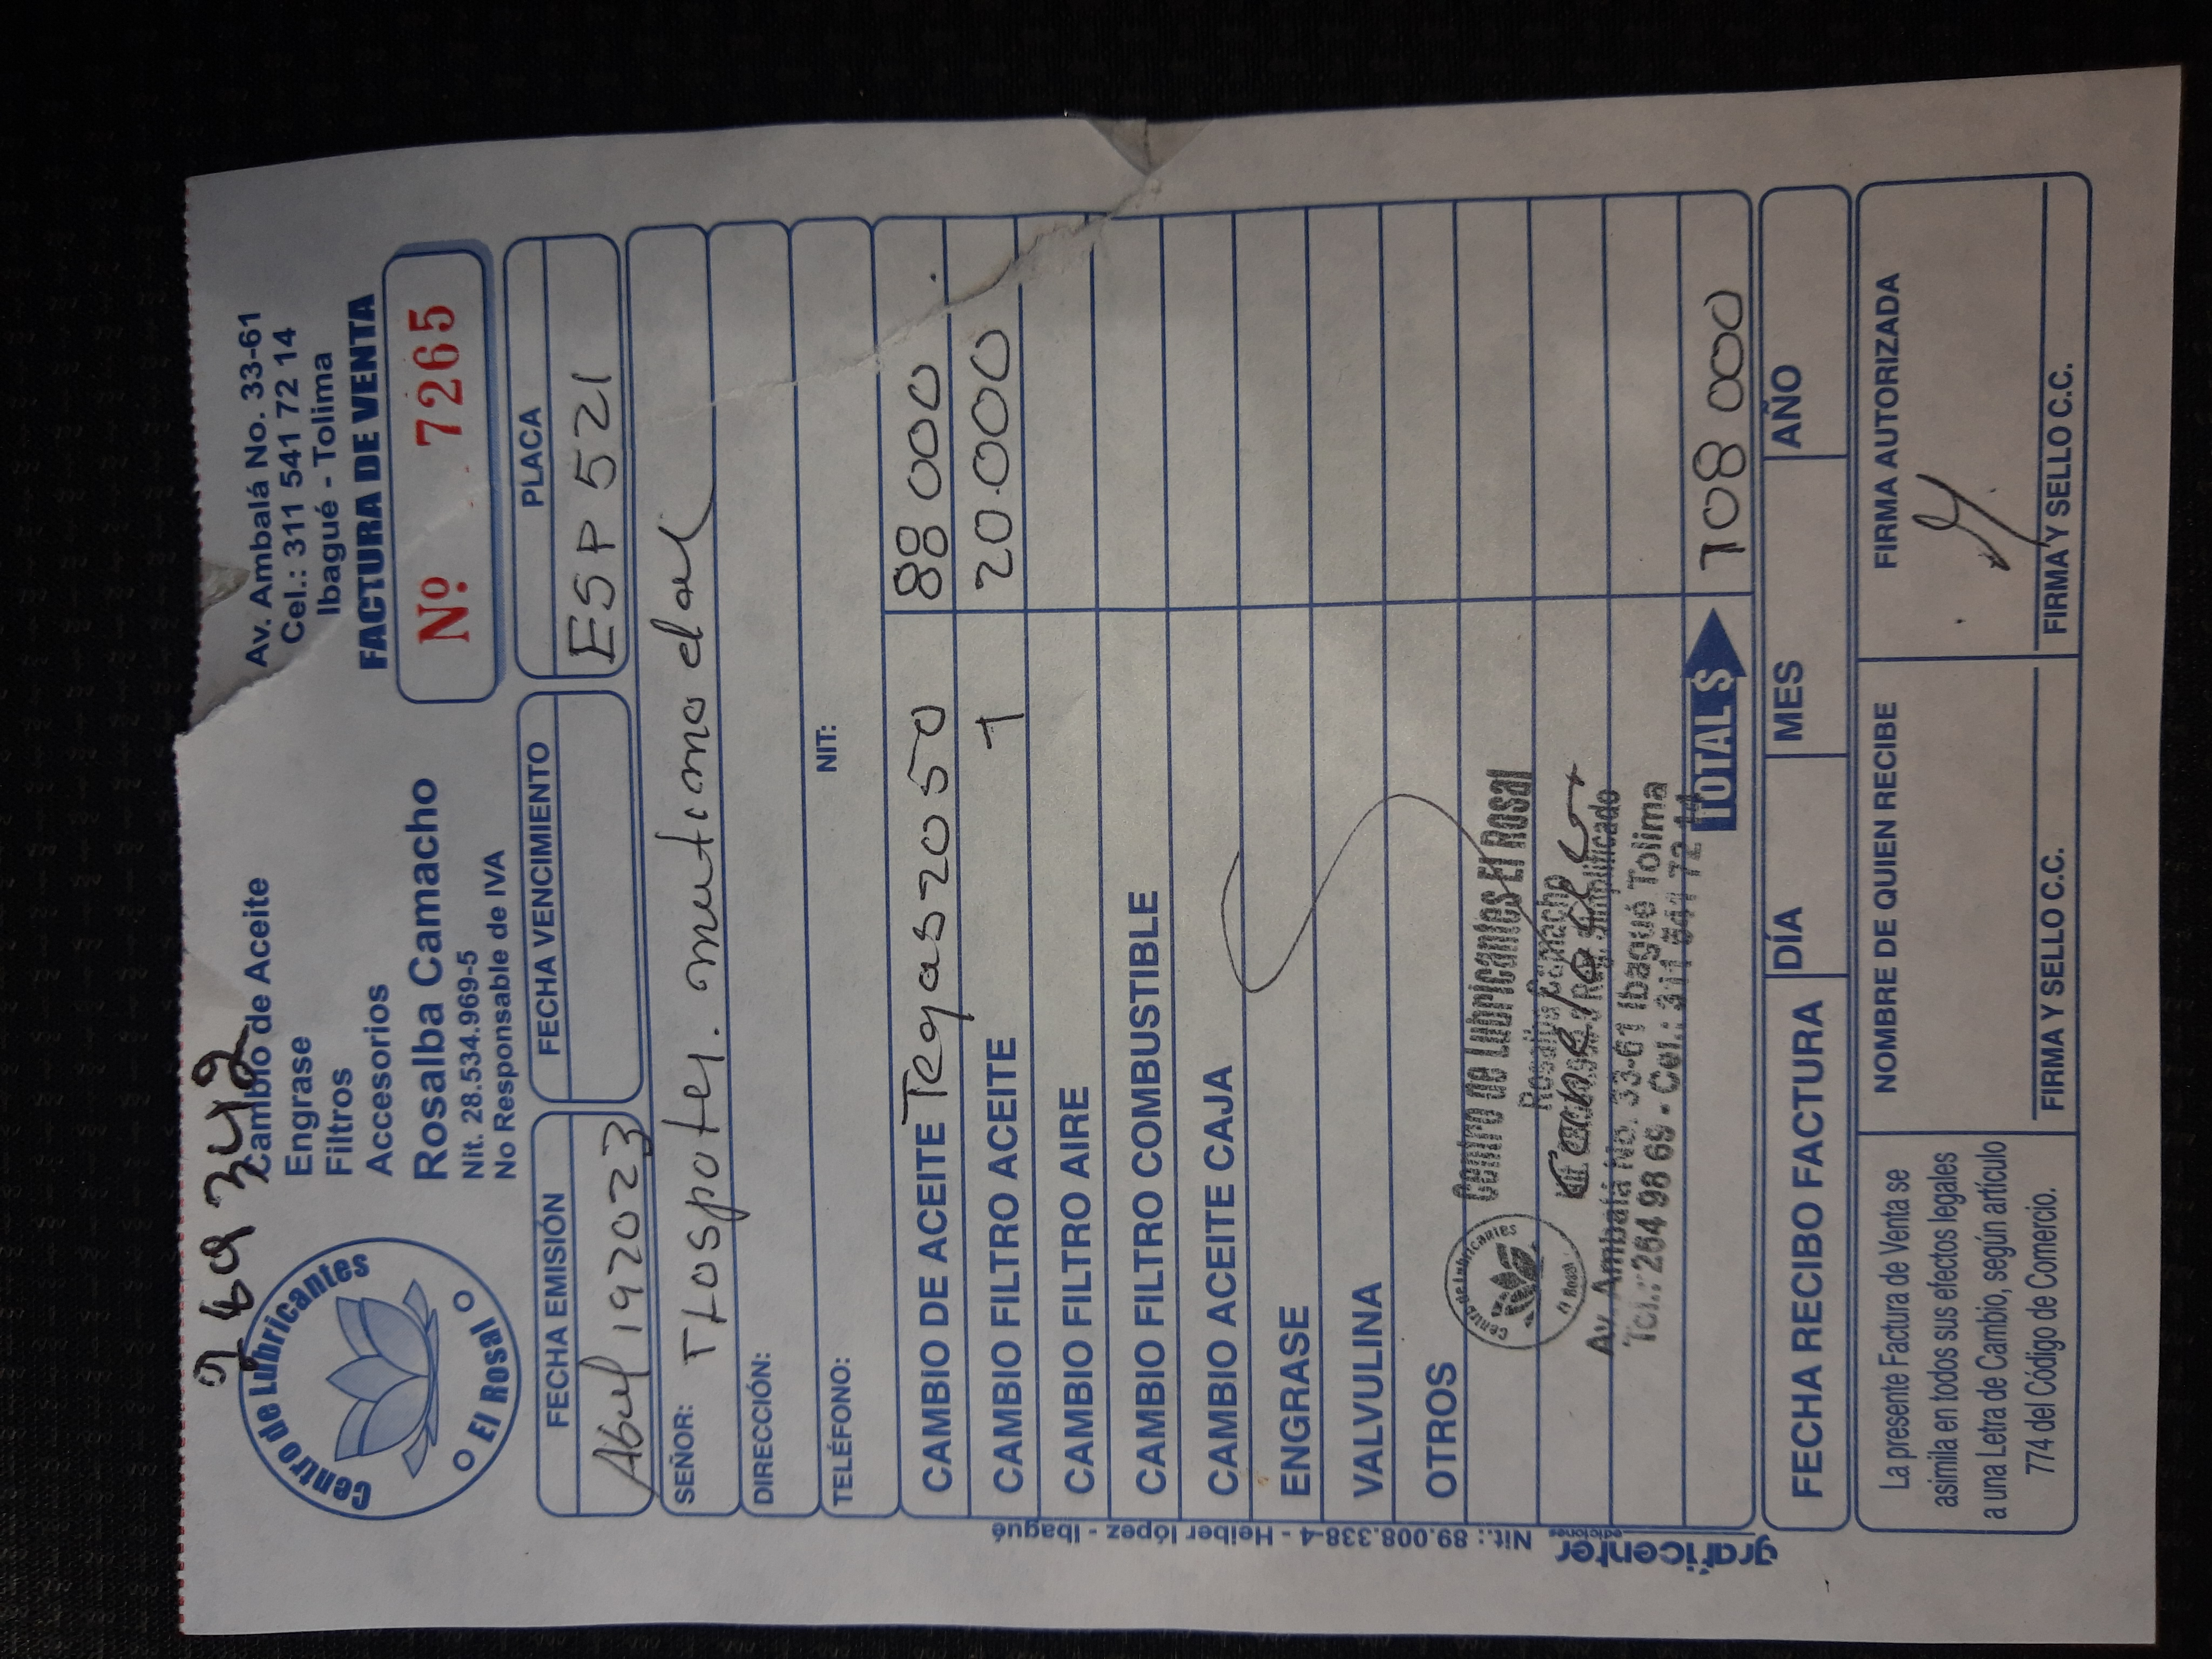 Centro de Lubricantes
El Rosal
Cambio de Aceite
Engrase
Filtros
Accesorios
Rosalba Camacho
Nit. 28.534.969-5
No Responsable de IVA
Av. Ambalá No. 33-61
Cel.: 311 541 72 14
Ibagué - Tolima
FACTURA DE VENTA
Nº. 7265
FECHA EMISIÓN FECHA VENCIMIENTO PLACA
192023 ESP 521
SEÑOR:
DIRECCIÓN:
TELÉFONO: NIT:
CAMBIO DE ACEITE 2050 88 000
CAMBIO FILTRO ACEITE 1 20.000
CAMBIO FILTRO AIRE
CAMBIO FILTRO COMBUSTIBLE
CAMBIO ACEITE CAJA
ENGRASE
VALVULINA
OTROS
Centro de Lubricantes El Rosal
Centro de Lubricantes
El Rosal
Rosalba Camacho
Av. Ambalá No. 33-61 Ibagué Tolima
Cel.: 311 541 72 14
TOTAL $ 108 000
FECHA RECIBO FACTURA DÍA MES AÑO
La presente Factura de Venta se
asimila en todos sus efectos legales
a una Letra de Cambio, según artículo
774 del Código de Comercio.
NOMBRE DE QUIEN RECIBE
FIRMA Y SELLO C.C.
FIRMA AUTORIZADA
FIRMA Y SELLO C.C.
graficenter
ediciones
Nit.: 89.008.338-4 - Heiber lópez - Ibagué